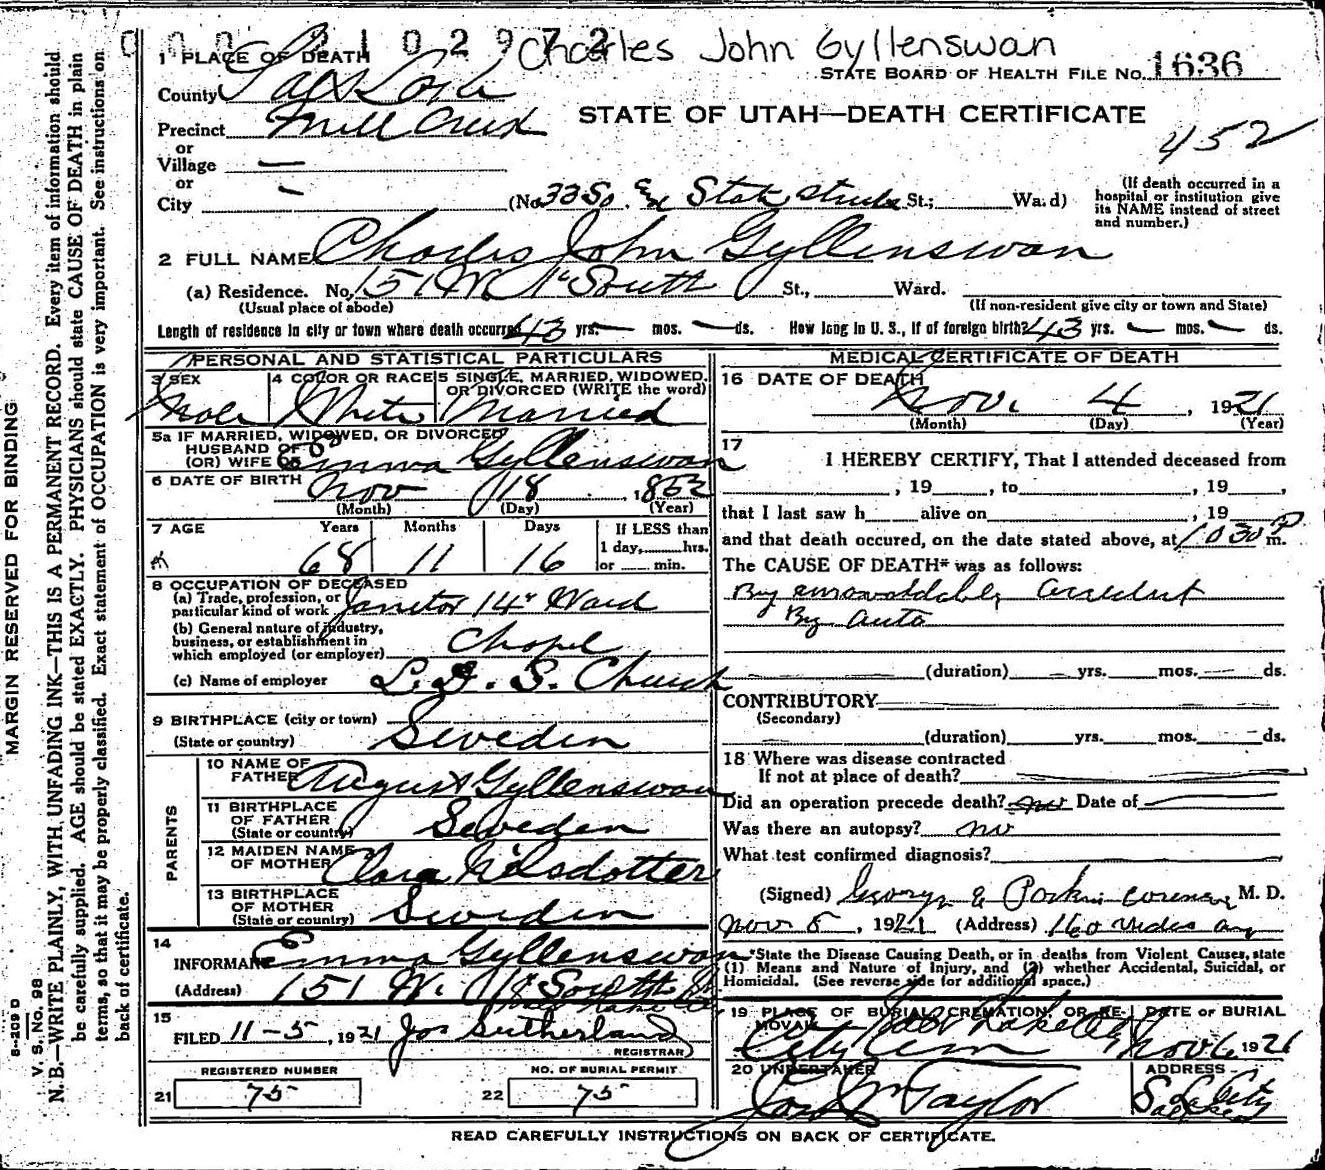 Charles John Gyllenswan
STATE BOARD OF HEALTH FILE NO. 1636
STATE OF UTAH—DEATH CERTIFICATE
452
1 PLACE OF DEATH
County Salt Lake
Precinct Mill Creek
or
Village —
or
City — (No. 33 So. State Street St.; Ward)
(If death occurred in a
hospital or institution give
its NAME instead of street
and number.)
2 FULL NAME Charles John Gyllenswan
(a) Residence. No. 151 W. South St., Ward.
(Usual place of abode) (If non-resident give city or town and State)
Length of residence in city or town where death occurred 43 yrs. — mos. — ds. How long in U. S., if of foreign birth? 43 yrs. — mos. — ds.
PERSONAL AND STATISTICAL PARTICULARS
3 SEX
Male
4 COLOR OR RACE
White
5 SINGLE, MARRIED, WIDOWED,
OR DIVORCED (WRITE the word)
Married
5a IF MARRIED, WIDOWED, OR DIVORCED
HUSBAND OF
(OR) WIFE OF Emma Gyllenswan
6 DATE OF BIRTH Nov 18, 1852
(Month) (Day) (Year)
7 AGE Years Months Days If LESS than
1 day, hrs.
68 11 16 or min.
8 OCCUPATION OF DECEASED
(a) Trade, profession, or
particular kind of work Janitor 14" Ward
(b) General nature of industry,
business, or establishment in
which employed (or employer) Chapel
(c) Name of employer L. D. S. Church
9 BIRTHPLACE (city or town)
(State or country) Sweden
PARENTS
10 NAME OF
FATHER August Gyllenswan
11 BIRTHPLACE
OF FATHER
(State or country) Sweden
12 MAIDEN NAME
OF MOTHER Clara Nilsdotter
13 BIRTHPLACE
OF MOTHER
(State or country) Sweden
14
INFORMANT Emma Gyllenswan
(Address) 151 W. South
15
FILED 11-5, 1921 Jos Sutherland
REGISTRAR
REGISTERED NUMBER
21 75
NO. OF BURIAL PERMIT
22 75
MEDICAL CERTIFICATE OF DEATH
16 DATE OF DEATH
Nov. 4, 1921
(Month) (Day) (Year)
17
I HEREBY CERTIFY, That I attended deceased from
, 19 , to , 19 ,
that I last saw h alive on , 19
and that death occured, on the date stated above, at 1030 P m.
The CAUSE OF DEATH* was as follows:
By unavoidable accident
By auto
(duration) yrs. mos. ds.
CONTRIBUTORY
(Secondary)
(duration) yrs. mos. ds.
18 Where was disease contracted
If not at place of death?
Did an operation precede death? no Date of
Was there an autopsy? no
What test confirmed diagnosis?
(Signed) George Coroner, M. D.
Nov 5, 1921 (Address) 160
*State the Disease Causing Death, or in deaths from Violent Causes, state
(1) Means and Nature of Injury, and (2) whether Accidental, Suicidal, or
Homicidal. (See reverse side for additional space.)
19 PLACE OF BURIAL, CREMATION, OR RE-
MOVAL Salt Lake
City Cem
DATE OF BURIAL
Nov 6, 1921
20 UNDERTAKER
Taylor
ADDRESS
Salt Lake City
READ CAREFULLY INSTRUCTIONS ON BACK OF CERTIFICATE.
MARGIN RESERVED FOR BINDING
V. S. No. 98
N. B.—WRITE PLAINLY, WITH UNFADING INK—THIS IS A PERMANENT RECORD. Every item of information should
be carefully supplied. AGE should be stated EXACTLY. PHYSICIANS should state CAUSE OF DEATH in plain
terms, so that it may be properly classified. Exact statement of OCCUPATION is very important. See instructions on
back of certificate.